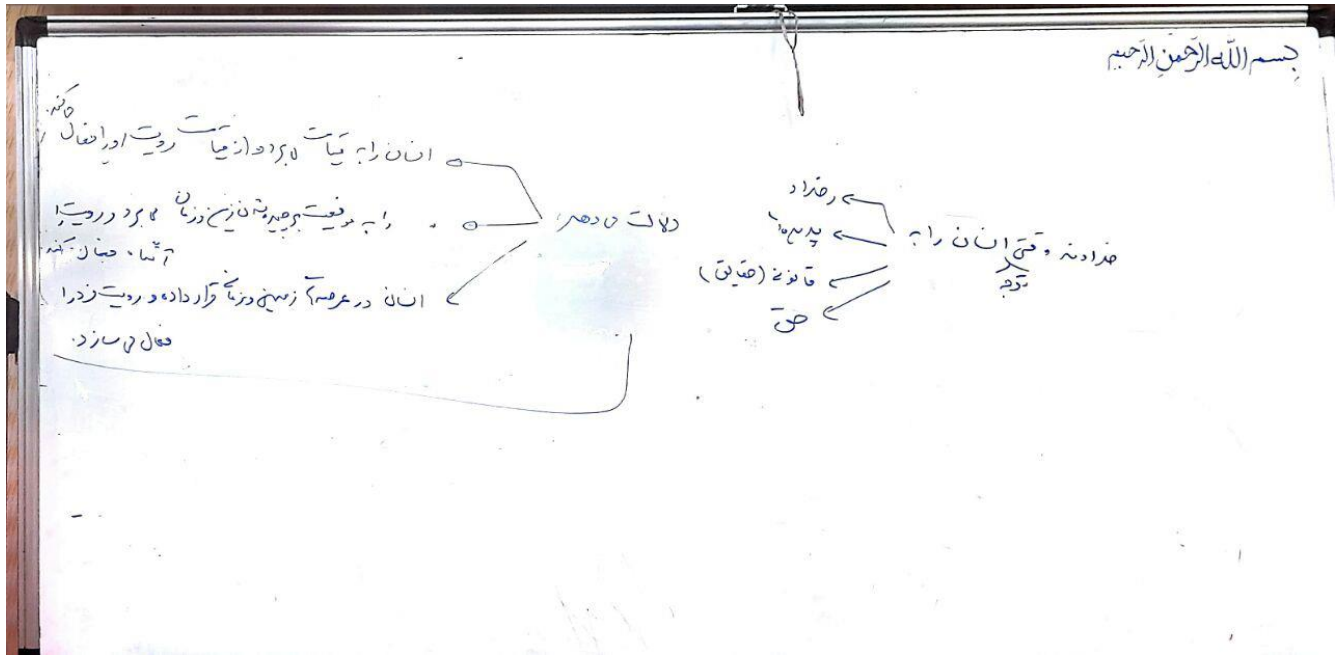 بسم الله الرّحمن الرّحیم
خداوند وقتی انسان را به
توجه
رخداد
پدیده‌ها
قانون (حقایق)
حق
دلالت می‌دهد
انسان را به قیامت می‌برد و از قیامت رویت او را فعال می‌کند.
را به موقعیت برچیده شدن زمین و زمان می‌برد و رویت را
آنجا فعال می‌کند
انسان در عرصه زمین و زمان قرار داده و رویت خود را
فعال می‌سازد.